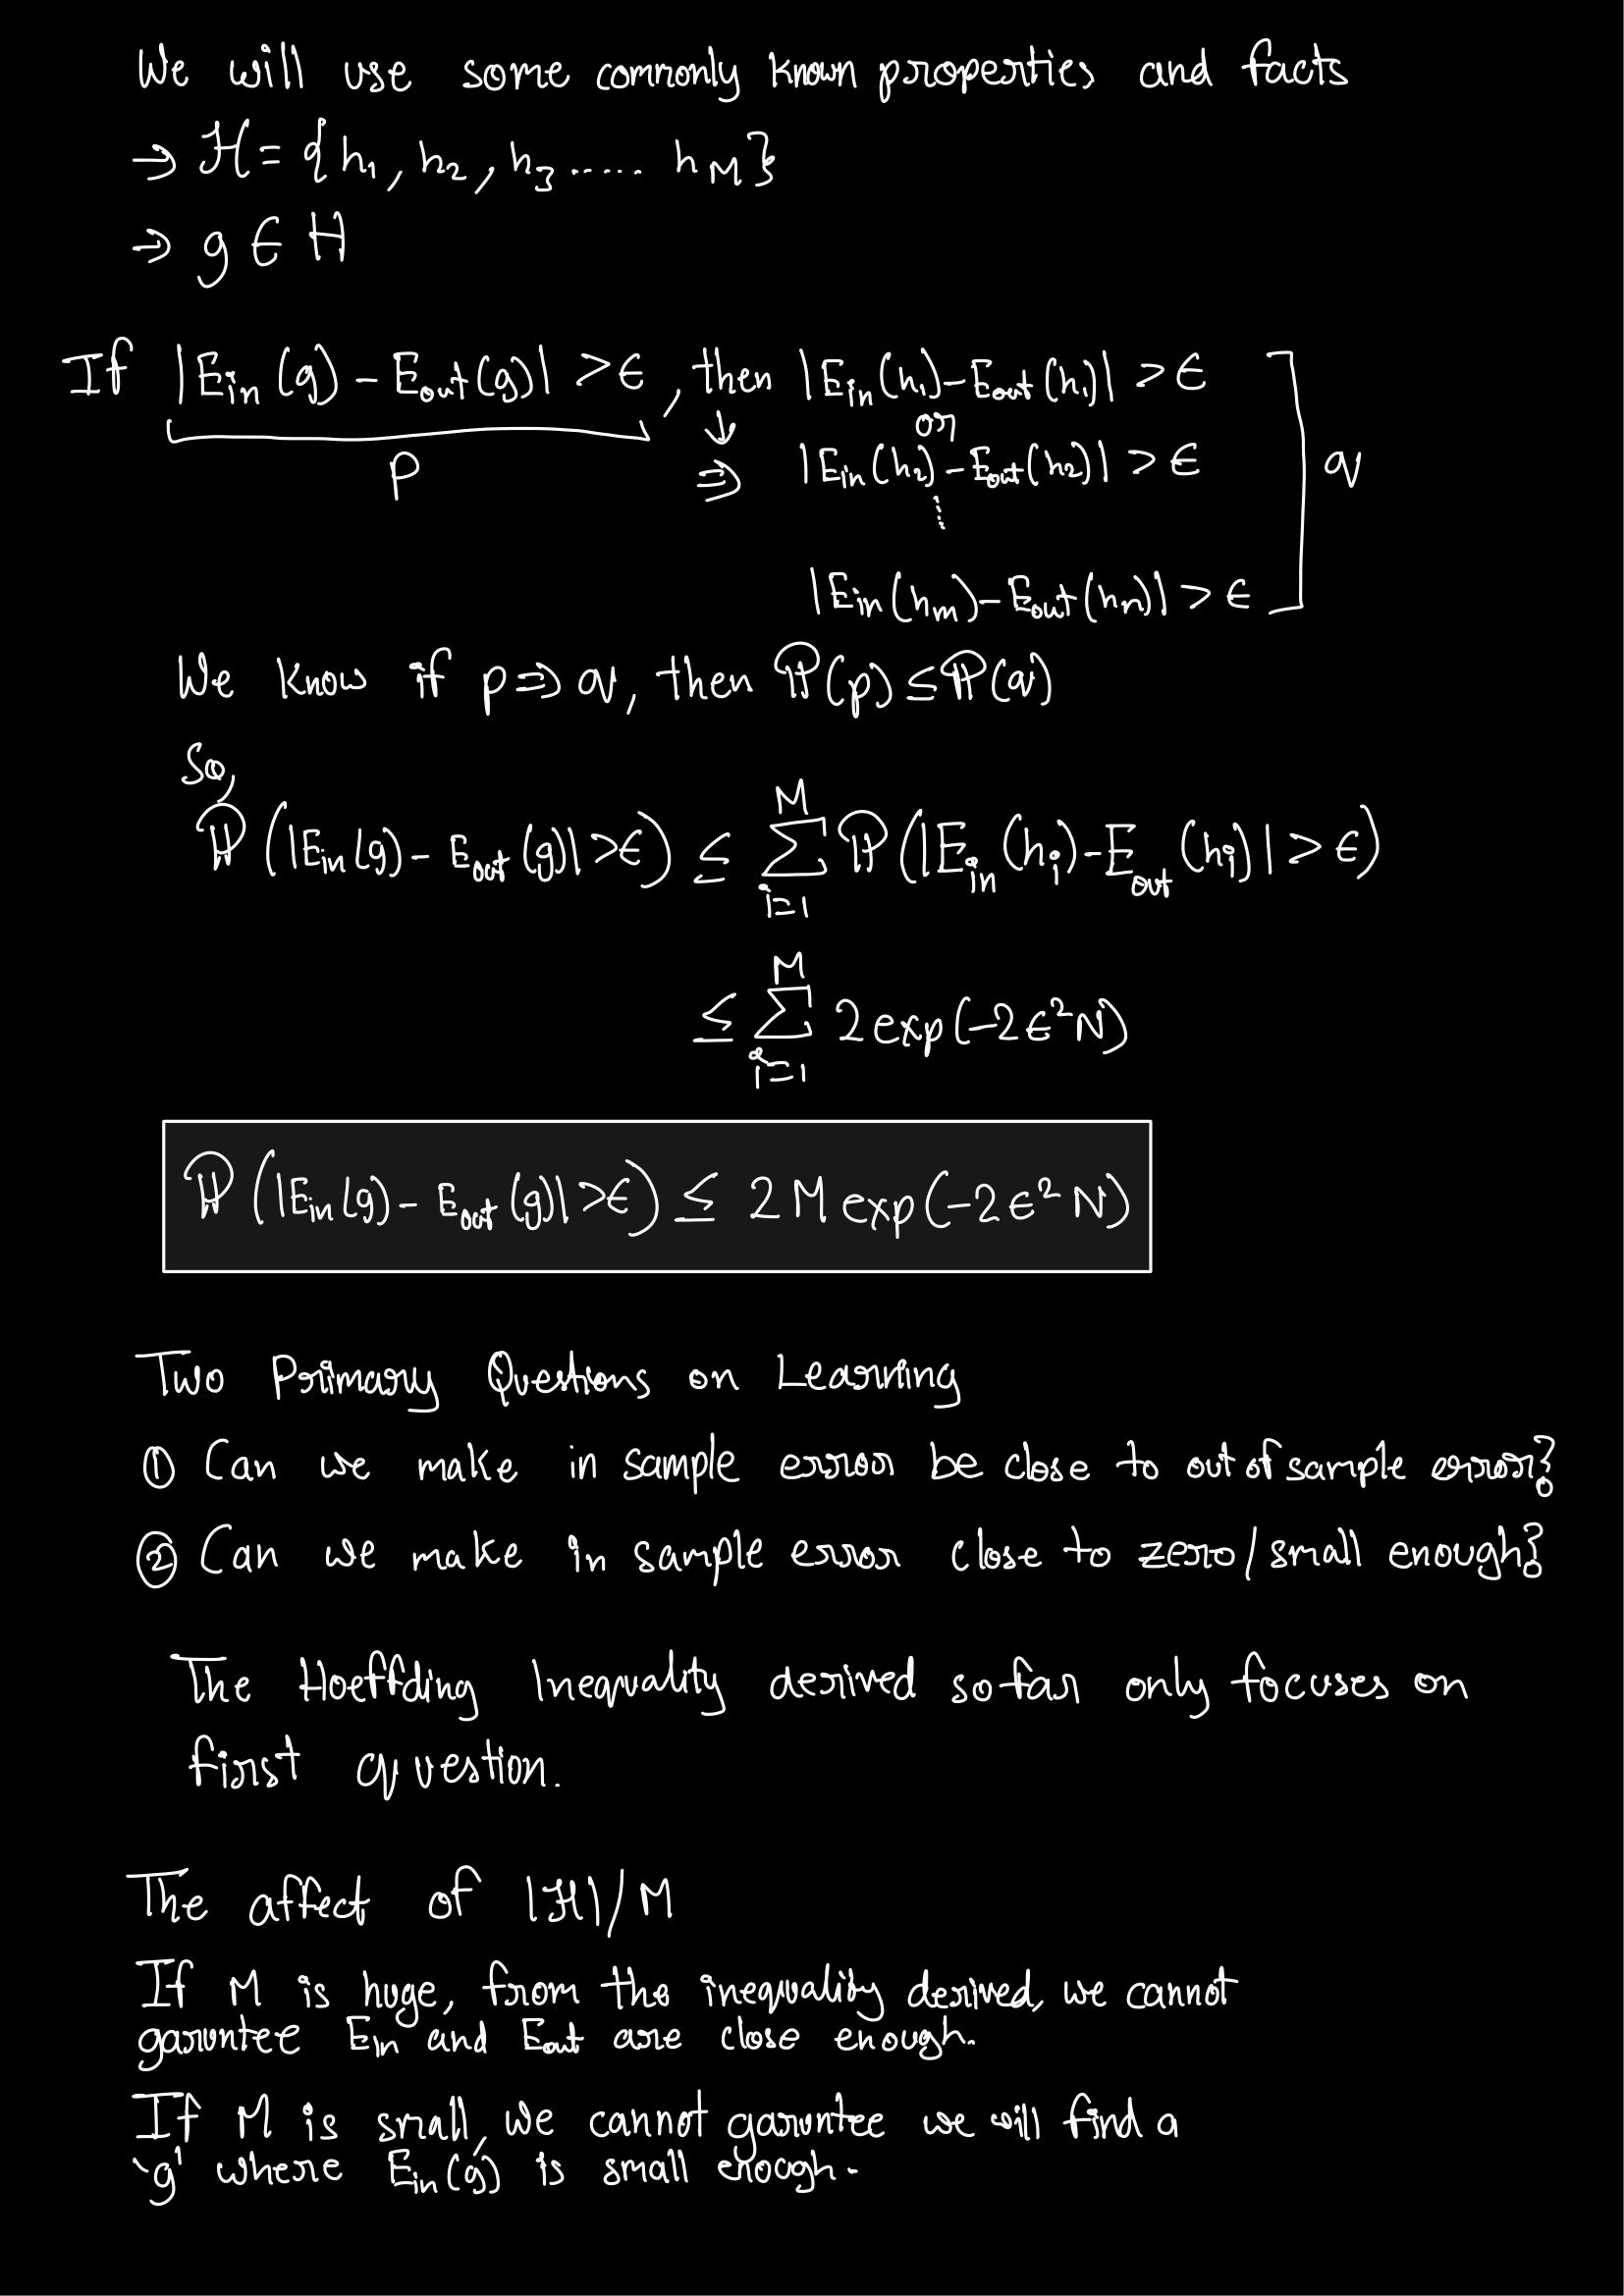 We will use some commonly known properties and facts
→ ℋ = {h₁, h₂, h₃ ..... h_M}
⇒ g ∈ H
If |E_in(g) - E_out(g)| > ϵ, then |E_in(h₁) - E_out(h₁)| > ϵ
↓ or
p ⇒ |E_in(h₂) - E_out(h₂)| > ϵ q
⋮
|E_in(h_m) - E_out(h_m)| > ϵ
We know if p ⇒ q, then ℙ(p) ≤ ℙ(q)
So,
ℙ(|E_in(g) - E_out(g)| > ϵ) ≤ ∑_{i=1}^{M} ℙ(|E_in(h_i) - E_out(h_i)| > ϵ)
≤ ∑_{i=1}^{M} 2 exp(-2ϵ²N)
ℙ(|E_in(g) - E_out(g)| > ϵ) ≤ 2 M exp(-2ϵ²N)
Two Primary Questions on Learning
① Can we make in sample error be close to out of sample error?
② Can we make in sample error close to zero/small enough?
The Hoeffding Inequality derived so far only focuses on
first question.
The affect of |ℋ|/M
If M is huge, from the inequality derived, we cannot
garuntee E_in and E_out are close enough.
If M is small, we cannot garuntee we will find a
'g' where E_in(g) is small enough.